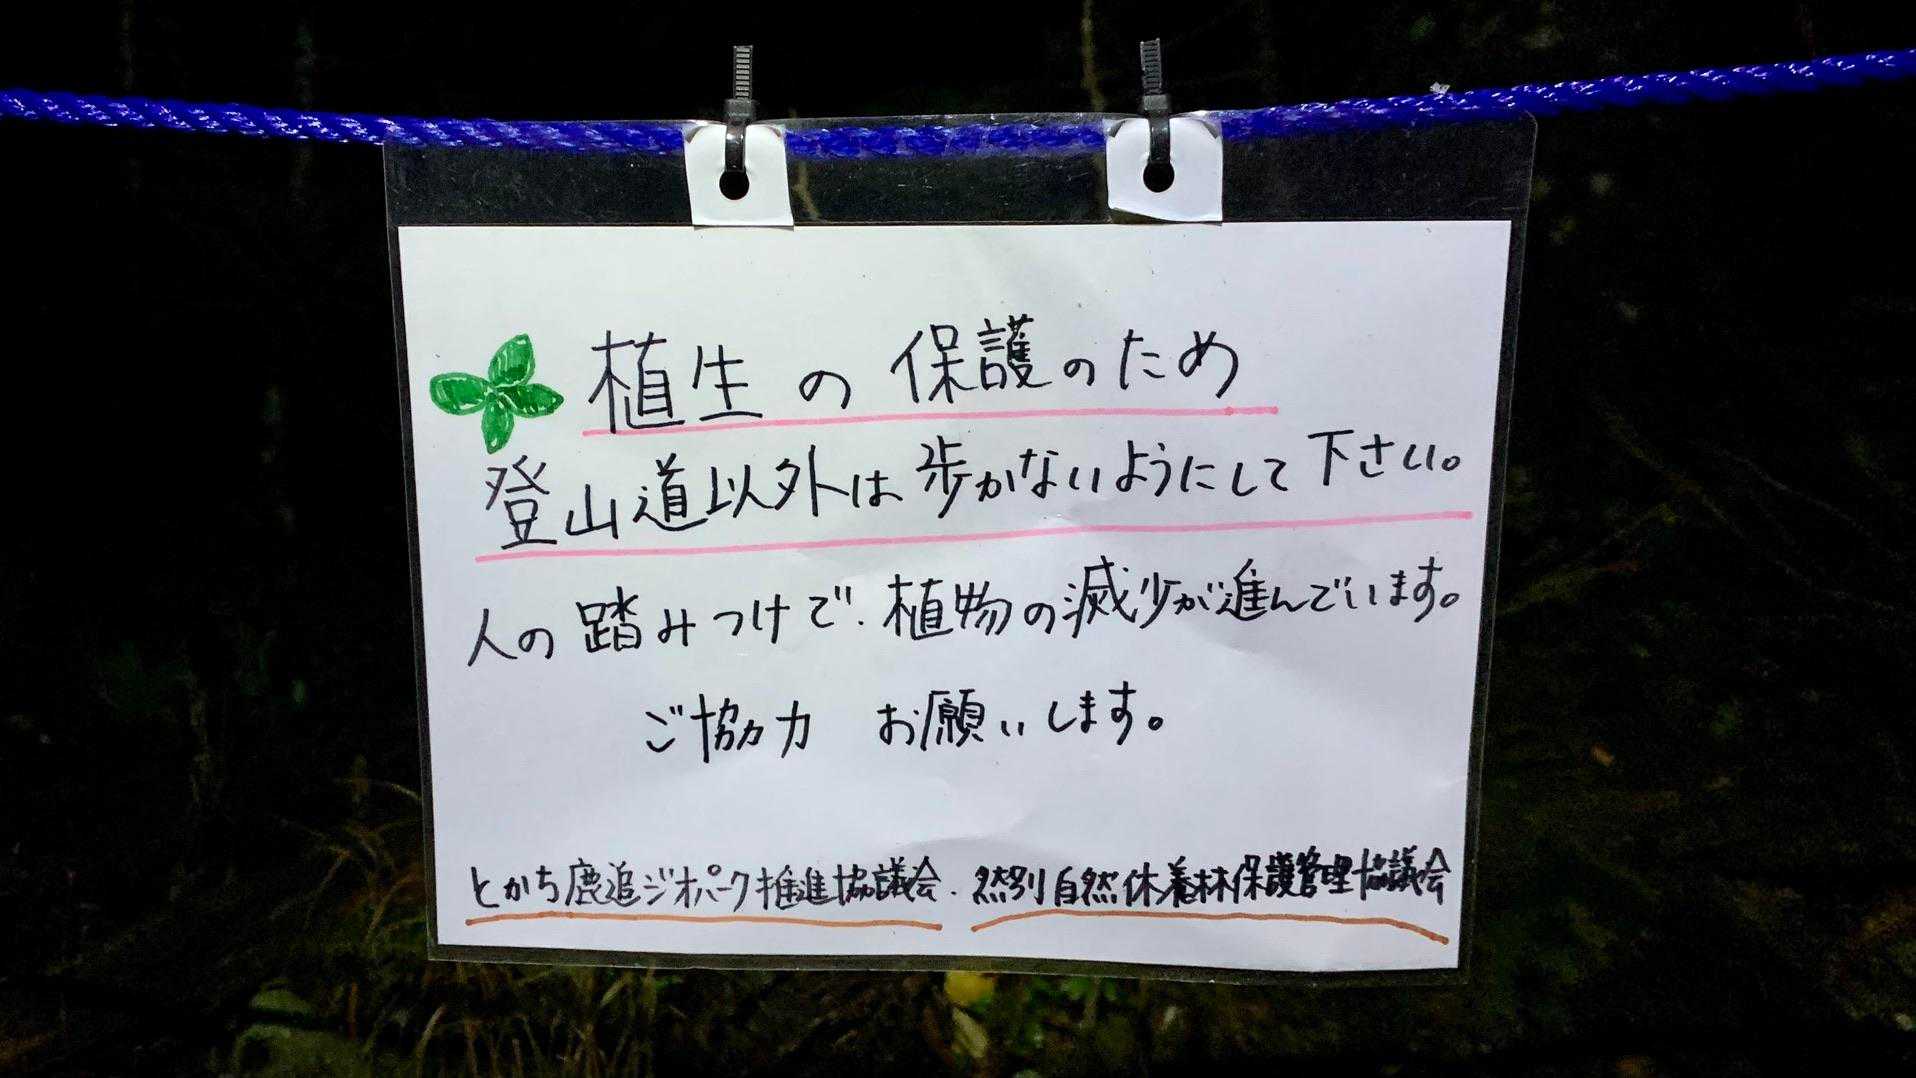 植生の保護のため
登山道以外は歩かないようにして下さい。
人の踏みつけで、植物の減少が進んでいます。
ご協力 お願いします。
とかち鹿追ジオパーク推進協議会・然別自然休養林保護管理協議会